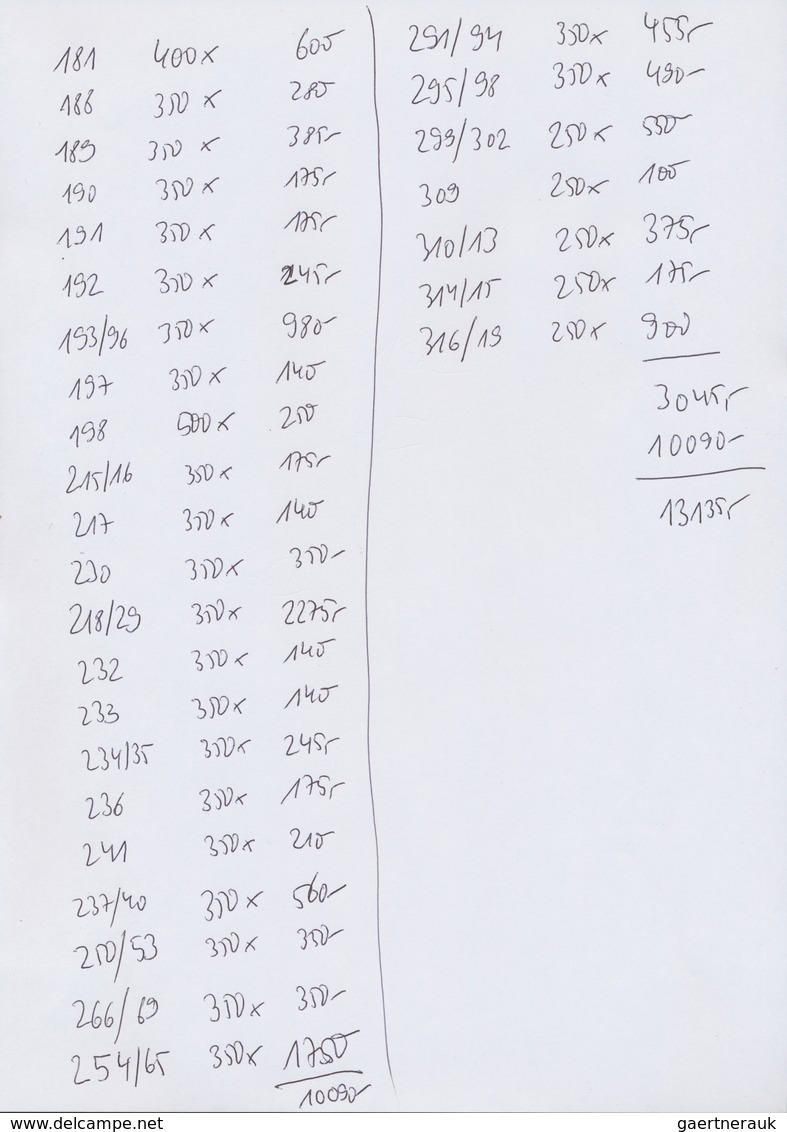 181 400x 600
188 350x 280
189 350x 385,-
190 350x 175,-
191 350x 175,-
192 350x 245,-
193/96 350x 980-
197 350x 140
198 500x 250
215/16 350x 175,-
217 350x 140
230 350x 350-
218/29 350x 2275,-
232 350x 140
233 350x 140
234/35 350x 245,-
236 350x 175,-
241 350x 210
237/40 350x 560-
250/53 350x 350-
266/69 350x 350-
254/65 350x 1750
10090-
291/94 350x 455,-
295/98 350x 490-
299/302 250x 550
309 250x 100
310/13 250x 375,-
314/15 250x 175,-
316/19 250x 900
3045,-
10090-
13135,-
www.delcampe.net
gaertnerauk